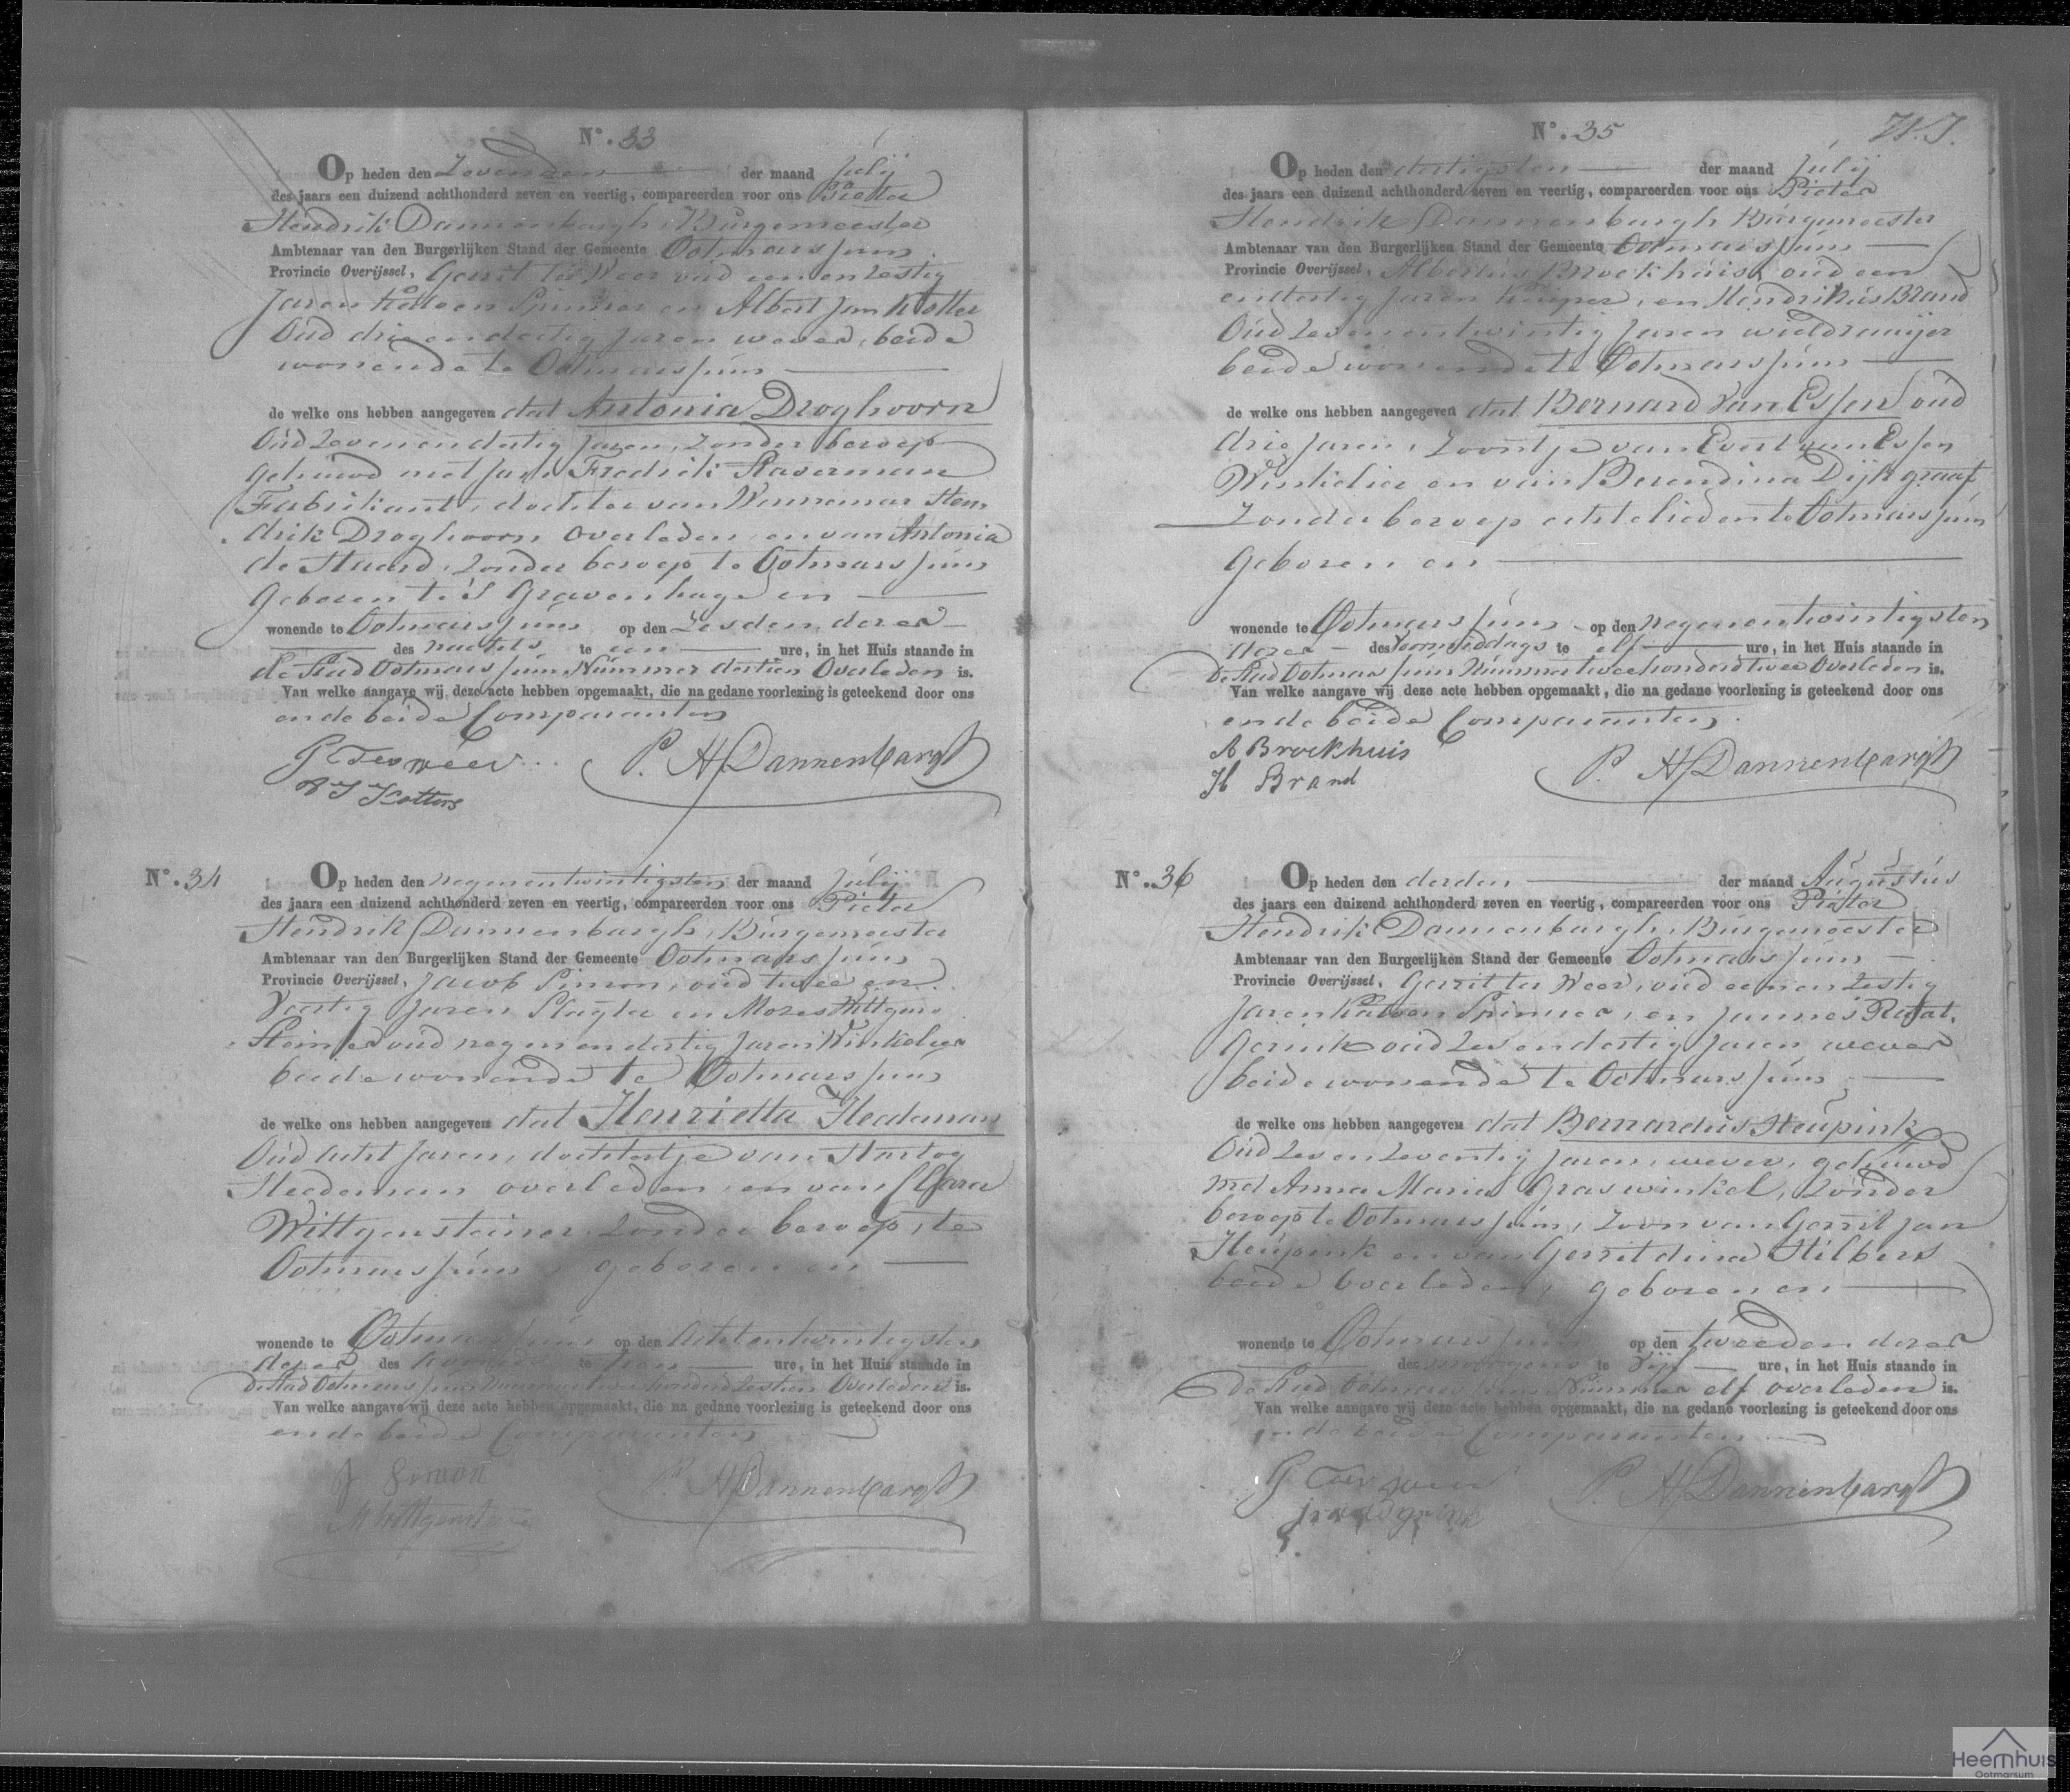 N°. 33
Op heden den Zevenden der maand Julij
des jaars een duizend achthonderd zeven en veertig, compareerden voor ons Pieter
Hendrik Dannenbargh, Burgemeester
Ambtenaar van den Burgerlijken Stand der Gemeente Ootmarssum
Provincie Overijssel, Gerrit ter Weer oud een en zestig
Jaren Katoen Spinner en Albert Jan Kotter
Oud drie en dertig Jaren wever, beide
wonende te Ootmarssum
de welke ons hebben aangegeven dat Antonia Droghoorn
Oud zeven en dertig Jaren, zonder beroep
gehuwd met Jan Fredrik Staverman
Fabrikant, dochter van Wennemar Hen,
drik Droghoorn overleden en van Antonia
de Haard, zonder beroep te Ootmarssum
Geboren te S Gravenhage en
wonende te Ootmarssum op den Zesden dezer
des nachts te een ure, in het Huis staande in
de Stad Ootmarssum Nummer dertien Overleden is.
Van welke aangave wij deze acte hebben opgemaakt, die na gedane voorlezing is geteekend door ons
en de beide Comparanten
G Ter weer
A J Kotters
P. H Dannenbargh
N°. 34
Op heden den negenentwintigsten der maand Julij
des jaars een duizend achthonderd zeven en veertig, compareerden voor ons Pieter
Hendrik Dannenbargh, Burgemeester
Ambtenaar van den Burgerlijken Stand der Gemeente Ootmarssum
Provincie Overijssel, Jacob Simon, oud twee en
Veertig Jaren Slagter en Mozes Wittgen,
Steiner oud negen en dertig Jaren Winkelier
beide wonende te Ootmarssum
de welke ons hebben aangegeven dat Henrietta Hedeman
Oud acht Jaren, dochtertje van Hartog
Hedeman overleden en van Clara
Wittgensteiner zonder beroep, te
Ootmarssum, geboren en
wonende te Ootmarssum op den Achtentwintigsten
dezer des te ure, in het Huis staande in
de Stad Ootmarssum Nummer Zestien Overleden is.
Van welke aangave wij deze acte hebben opgemaakt, die na gedane voorlezing is geteekend door ons
en de beide Comparanten
J Simon
M Wittgensteiner
P. H Dannenbargh
N°. 35
Op heden den dertigsten der maand Julij
des jaars een duizend achthonderd zeven en veertig, compareerden voor ons Pieter
Hendrik Dannenbargh Burgemeester
Ambtenaar van den Burgerlijken Stand der Gemeente Ootmarssum
Provincie Overijssel, Albertus Broekhuis, oud een
en dertig Jaren Kuiper, en Hendrikus Brand
Oud zevenentwintig Jaren wieldraaijer
beide wonende te Ootmarssum
de welke ons hebben aangegeven dat Bernard van Essen oud
drie Jaren, zoontje van Evert van Essen
Winkelier en van Berendina Dijkgraaf
zonder beroep echtelieden te Ootmarssum
geboren en
wonende te Ootmarssum op den negenentwintigsten
dezer des Voormiddags te elf ure, in het Huis staande in
de Stad Ootmarssum Nummer tweehonderd twee Overleden is.
Van welke aangave wij deze acte hebben opgemaakt, die na gedane voorlezing is geteekend door ons
en de beide Comparanten
A Broekhuis
H Brand
P. H Dannenbargh
N°. 36
Op heden den derden der maand Augustus
des jaars een duizend achthonderd zeven en veertig, compareerden voor ons Pieter
Hendrik Dannenbargh, Burgemeester
Ambtenaar van den Burgerlijken Stand der Gemeente Ootmarssum
Provincie Overijssel, Gerrit ter Weer, oud een en zestig
Jaren Katoen Spinner, en Jannes
Gerink oud zes en dertig Jaren wever
beide wonende te Ootmarssum
de welke ons hebben aangegeven dat Bernardus Heupink
Oud zes en zeventig Jaren, wever, gehuwd
met Anna Maria Graswinkel, zonder
beroep te Ootmarssum, zoon van Gerrit Jan
Heupink en van Gerritdina Hilbers
beide overleden, geboren en
wonende te Ootmarssum op den tweeden dezer
des morgens te Vijf ure, in het Huis staande in
de Stad Ootmarssum Nummer elf overleden is.
Van welke aangave wij deze acte hebben opgemaakt, die na gedane voorlezing is geteekend door ons
en de beide Comparanten
G Ter weer
P. H Dannenbargh
Heemhuis
Ootmarsum